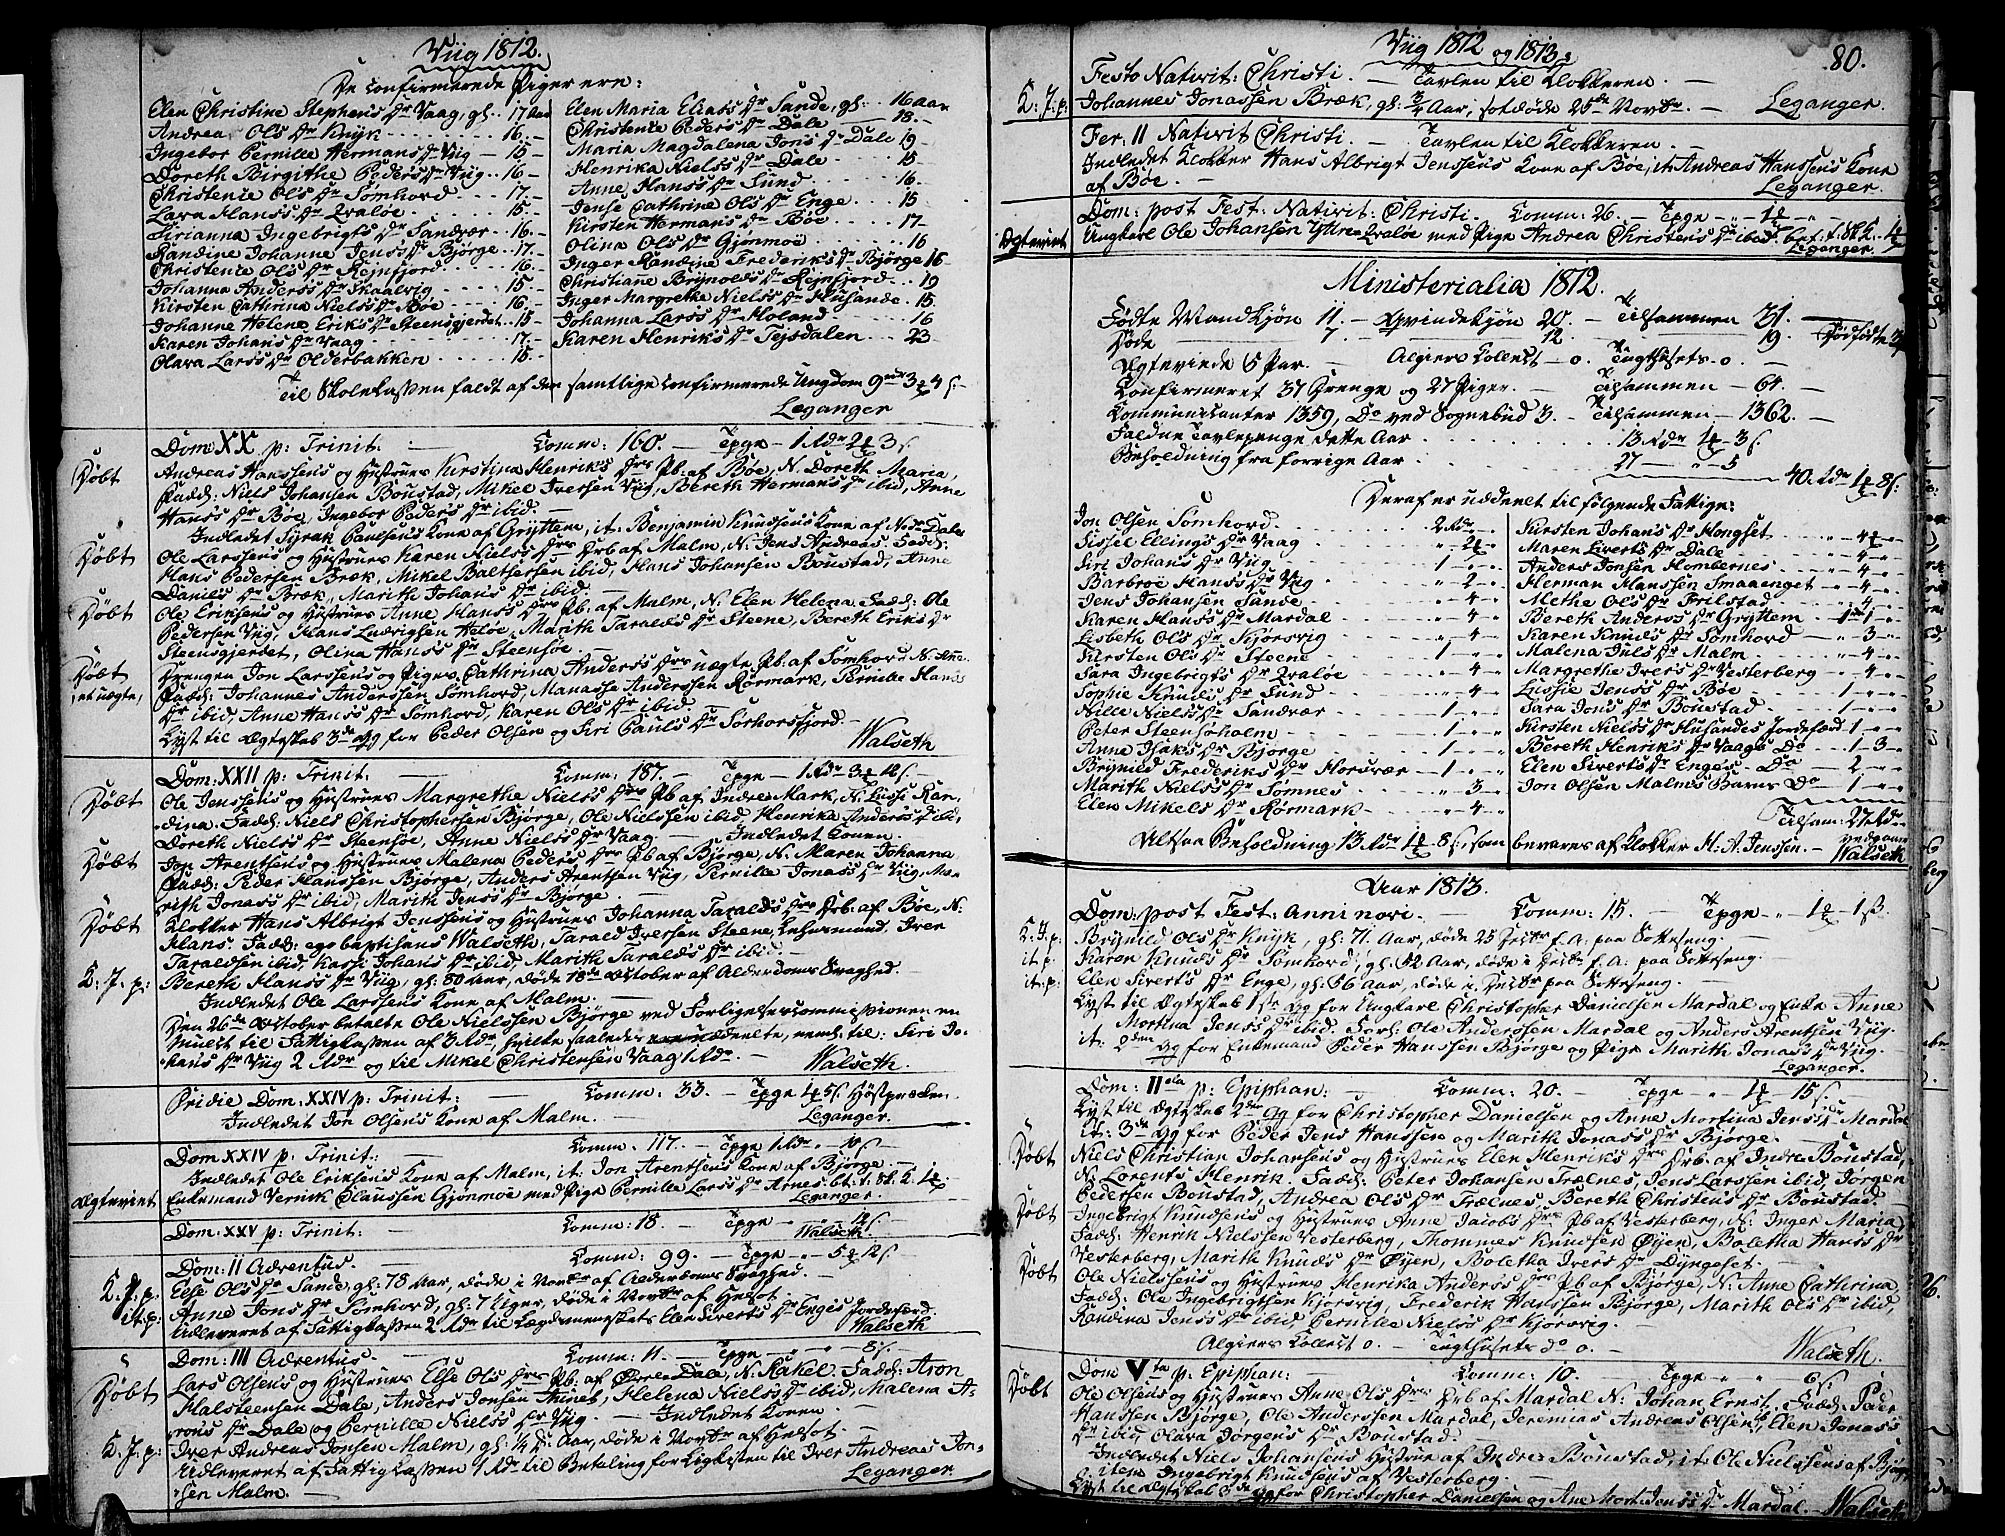 Viig 1812.
De confirmerede Piger ere:
Elen Christine Stephens Dr Vaag, gl. 17 Aar
Andrea Ols Dr Knyk 16
Ingebor Pernille Hermans Dr Viig 15
Doreth Birgithe Peders Dr Viig 16
Christence Ols Dr Sømhord 17
Lava Hanss Dr Qvaløe 15
Sirianna Ingebrigts Dr Sandvær 16
Randine Johanne Jens Dr Bjørge 17
Christence Ols Dr Rejnfjord 16
Johanna Anders Dr Skaalvig 15
Kirsten Cathrina Niels Dr Bøe 16
Johanne Helene Eriks Dr Steensgjerdet 15
Karen Johans Dr Vaag 17
Olava Lars Dr Olderbakken 15
Elen Maria Elias Dr Sande, gl. 16 Aar
Christence Peders Dr Dale 18
Maria Magdalena Jons Dr Dale 19
Henrika Niels Dr Dale 15
Anne Hans Dr Sund 16
Jense Cathrine Ols Dr Enge 15
Kirsten Hermans Dr Bøe 17
Olina Ols Dr Gjønmoe 16
Inger Randine Frederiks Dr Bjørge 16
Christiane Brynolds Dr Rejnfjord 19
Inger Margrethe Niels Dr Husande 15
Johanna Lars Dr Holand 16
Karen Henriks Dr Tejsdalen 23
Til Skolekassen faldt af den samtlige confirmerede Ungdom
Leganger
Dom XX p: Trinit: Comm: 160 Tpge 1 Rdr 2 3 s
Døbt Andreas Hanssens og Hustrues Kirstina Henriks Drs Pb. af Bøe, N. Doreth Maria,
Fadd: Niels Johansen Boustad, Mikel Iversen Viig, Bereth Hermans Dr ibid, Anne
Hans Dr Bøe, Ingebor Peders Dr ibid.
Indledet Syrak Paulsens Kone af Gryttem, it. Benjamin Knudsens Kone af Nr Dale
Døbt Ole Larssens og Hustrues Karen Niels Drs Drb af Malm, N. Jens Andreas. Fadd:
Hans Pedersen Bræk, Mikel Balthersen ibid, Hans Johansen Boustad, Anne
Daniels Dr Bræk, Marith Johans Dr ibid.
Døbt Ole Eriksens og Hustrues Anne Hans Drs Pb. af Malm, N. Elen Helena. Fadd: Ole
Pedersen Viig, Hans Ludvigsen Heløe, Marith Taralds Dr Steene, Bereth Eriks Dr
Steensgjerdet, Olina Hans Dr Steensøe.
Døbt et uægte, Drengen Jon Larssens og Pigen Cathrina Anders Drs uægte Pb. af Sømhord N. Anne.
Fadd: Johannes Anderssen Sømhord, Manasse Anderssen Rørmark, Pernille Hans
Dr ibid, Anne Hans Dr Sømhord, Karen Ols Dr ibid.
Lyst til Ægteskab 3de Gg for Peder Olsen og Siri Pauls Dr Sørhorsfjord.
Walseth
Dom: XXII p: Trinit: Comm: 187. Tpge 1 Rdr 3 12 s
Døbt Ole Jenssens og Hustrues Margrethe Niels Drs Pb af Indre Mark, N. Lissi Ran-
dina. Fadd: Niels Christophersen Bjørge, Ole Nielssen ibid, Henrika Anders Dr ibid,
Doreth Niels Dr Steensøe, Anne Niels Dr Vaag. Indledet Konen.
Døbt Jon Arentsens og Hustrues Malena Peders Drs Pb af Bjørge, N. Maren Johanna
Fadd: Peder Hanssen Bjørge, Anders Arentsen Viig, Pernille Jonas Dr Viig, Ma-
rith Jonas Dr ibid, Marith Jens Dr Bjørge.
Døbt Klokker Hans Albrigt Jenssens og Hustrues Johanna Taralds Drs Drb. af Bøe, N:
Hans. Fadd: ego baptisans Walseth, Tarald Iversen Steene, Lehnsmand Iver
Taraldsen ibid, Karsi Johans Dr ibid, Marith Taralds Dr ibid.
K: J. p: Bereth Hans Dr Viig, gl: 80 Aar, døde 18de October af Alderdoms Svaghed.
Indledet Ole Larssens Kone af Malm.
Den 26de October betalte Ole Nielssen Bjørge ved Forligelsescommissionen en
Mulct til Fattigkassen af 3 Rdr, hvilke saaledes uddeelte, neml: til: Siri Jo-
hans Dr Viig 2 Rdr og til Mikel Christensen Vaag 1 Rdr.
Walseth.
Pridie Dom: XXIV p: Trinit: Comm: 33. Tpge 5 s Høstpræken.
Indledet Jon Olsens Kone af Malm. Leganger.
Dom XXIV p: Trinit: Comm: 117. Tpge 1 Rdr 10 s
Indledet Ole Eriksens Kone af Malm, it. Jon Arentsens Kone af Bjørge.
Ægteviet Enkemand Vernik Olaussen Gjønmoe med Pige Pernille Lars Dr Arnes. bt. t. Sk. 2.
Leganger.
Dom: XXV p: Trinit: Comm: 18. Tpge 12 s
Walseth.
Dom: II Adventus. Comm: 99. Tpge 5 12 s
K. J. p: Else Ols Dr Sande, gl: 78 Aar, døde i Novbr af Alderdoms Svaghed.
it: p: Anne Jons Dr Sømhord, gl: 7 Uger, døde i Novbr af Helsot.
Udleveret af Fattigkassen 2 Rdr til Lægdsmenneskets Elen Siverts Dr Enges Jordefærd.
Walseth
Dom: III Adventus. Comm: 11. Tpge 8 s
Døbt Lars Olsens og Hustrues Else Ols Drs Pb. af Øvre Dale, N. Rakel. Fadd: Aron
Halsteensen Dale, Anders Jonsen, Helena Niels Dr ibid, Malena A-
rons Dr Dale og Pernille Niels Dr Viig. Indledet Konen.
K. J. p: Iver Andreas Jonsen Malm, gl: 1/4 Aar, døde i Novbr af Helsot.
Udleveret af Fattigkassen 1 Rdr til Betaling for Ligkisten til Iver Andreas Jon-
sen Malm.
Leganger
Viig 1812 og 1813.
80.
Festo Nativit: Christi. Tavlen til Klokkeren.
K: J. p: Johannes Jonassen Bræk, gl: 3/4 Aar, sotdøde 25de Novbr. Leganger.
Fer: II Nativit Christi. Tavlen til Klokkeren.
Indledet Klokker Hans Albrigt Jenssens Kone af Bøe, it. Andreas Hanssens Kone
af Bøe. Leganger.
Dom: post Fest: Nativit: Christi. Comm: 26. Tpge 1
Ægteviet Ungkarl Ole Johansen Yttre Qvaløe med Pige Andrea Christens Dr ibid. bet. t. Sk. 2.
Leganger.
Ministerialia 1812.
Fødte Mandkjøn 11. Qvindekjøn 20. Tilsammen 31.
Døde 7. 12. 19. Dødfødte
Ægteviede 5 Par. Algiers Collect 0. Tugthusets 0
Confirmeret 37 Drenge og 27 Piger. Tilsammen 64.
Communicanter 1359, Do ved Sognebud 3. Tilsammen 1362.
Faldne Tavlepenge dette Aar 13 Rdr 3 s
Beholdning fra forrige Aar 27 5
40 Rdr 1 8 s
Deraf er uddeelt til følgende Fattige:
Jon Olsen Sømhord 2 Rdr
Sissel Ellings Dr Vaag 2
Siri Johans Dr Viig 1
Barbroe Hans Dr Viig 2
Jens Johansen Sande 4
Karen Hans Dr Mardal 4
Lisbeth Ols Dr Kjørsvig 4
Kirsten Ols Dr Steene 1
Sara Ingebrigts Dr Qvaløe 4
Sophie Knuds Dr Sund 4
Nille Niels Dr Sandvær 1
Peter Steensøholm 1
Anna Isaks Dr Bjørge 1
Brynild Frederiks Dr Horsvær 1
Marith Niels Dr Sømnes 3
Elen Mikels Dr Rørmark 4
Kirsten Johans Dr Hongset 4
Maren Siverts Dr Dale 4
Anders Jonsen Hombernes 4
Herman Hanssen Smaaenget 4
Methe Ols Dr Frilstad 4
Bereth Anders Dr Gryttem 1
Karen Knuds Dr Sømhord 3
Malena Juls Dr Malm 4
Margrethe Ivers Dr Vesterberg 4
Lissie Jens Dr Bøe 1
Sara Jons Dr Boustad 1
Kirsten Niels Dr Husandes Jordefærd 1
Bereth Henriks Dr Vaags Do 1 3
Elen Siverts Dr Enges Do 2
Jon Olsen Malms Barns Do 1
Tilsam: 27 Rdr
Altsaa Beholdning 13 Rdr 1 8 s, som bevares af Klokker H. A. Jenssen. vedgaaer
Walseth
Aar 1813.
Dom: post Fest: Anni novi. Comm: 15. Tpge 1 1 s.
K: J. p: Brynild Ols Dr Knyk, gl: 71 Aar, døde 25 Decbr f. A: paa Sotteseng.
it. p: Karen Knuds Dr Sømhord, gl: 52 Aar, døde i Decbr f. A: paa Sotteseng.
it: p: Elen Siverts Dr Enge, gl: 56 Aar, døde i Decbr paa Sotteseng.
Lyst til Ægteskab 1ste Gg for Ungkarl Christopher Danielsen Mardal og Enke Anne
Mortina Jens Dr ibid. Forl: Ole Anderssen Mardal og Anders Arentsen Viig.
it: 2den Gg for Enkemand Peder Hanssen Bjørge og Pige Marith Jonas Dr Viig.
Leganger.
Dom: IIda p: Epiphan: Comm: 20. Tpge 15 s.
Lyst til Ægteskab 2den Gg for Christopher Danielsen og Anne Mortina Jens Dr Mardal
it: 3de Gg for Peder Jens Hanssen og Marith Jonas Dr Bjørge.
Døbt Niels Christian Johansens og Hustrues Elen Henriks Drs Drb. af Indre Boustad,
N. Lorents Henrik. Fadd: Peter Johansen Trælnes, Jens Larssen ibid, Jørgen
Pedersen Boustad, Andrea Ols Dr Trælnes, Bereth Christens Dr Boustad.
Døbt Ingebrigt Knudsens og Hustrues Anne Jacobs Drs Pb af Vesterberg, N: Inger Maria,
Fadd: Henrik Nielssen Vesterberg, Thommes Knudsen Øyen, Boletha Hans Dr
Vesterberg, Marith Knuds Dr Øyen, Boletha Ivers Dr Dyngeset.
Døbt Ole Nielssens og Hustrues Henrika Anders Drs Pb af Bjørge, N: Anne Cathrina,
Fadd: Ole Ingebrigtsen Kjørsvig, Frederik Hanssen Bjørge, Marith Ols Dr ibid,
Randina Jens Dr ibid, Pernille Niels Dr Kjørsvig.
Algiers Collect 0. Tugthusets do 0.
Walseth.
Dom Vta p: Epiphan: Comm: 10. Tpge 6 s.
Døbt Ole Olsens og Hustrues Anne Ols Drs Drb af Mardal N: Johan Ernst. Fadd: Peder
Hanssen Bjørge, Ole Anderssen Mardal, Jeremias Andreas Olsen ibid, Elen Jonas
Dr ibid, Olava Jørgens Dr Boustad.
Indledet Niels Johansens Hustrue af Indre Boustad, it. Ole Nielssens af Bjørge
item Ingebrigt Knudsens af Vesterberg.
Lyst til Ægteskab 3de Gg for Christopher Danielsen og Ane Mort: Jens Dr Mardal. Walseth